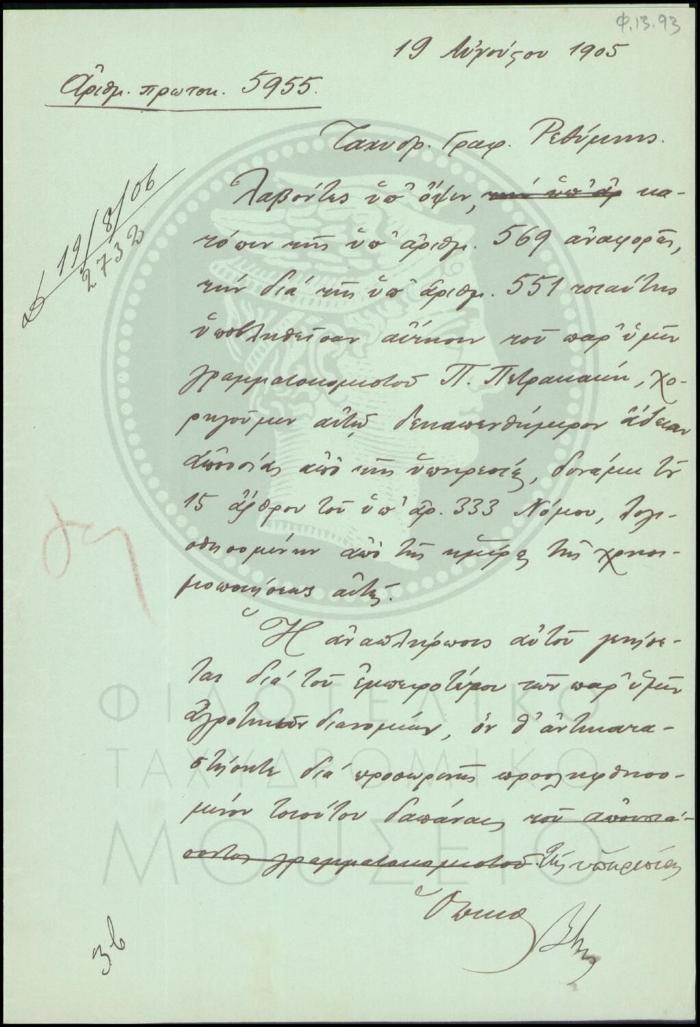 Φ.13.93
19 Αὐγούστου 1905
Ἀριθμ. πρωτοκ. 5955.
Ταχυδρ. Γραφ. Ρεθύμνης.
19/8/06
2732
Λαβόντες ὑπ' ὄψιν, τὴν ὑπ' ἀρ κα-
τόπιν τῆς ὑπ' ἀριθμ. 569 ἀναφορᾶς,
τὴν διὰ τῆς ὑπ' ἀριθμ. 551 τοιαύτης
ὑποβληθεῖσαν αἴτησιν τοῦ παρ' ὑμῖν
γραμματοκομιστοῦ Π. Πετρακάκη, χο-
ρηγοῦμεν αὐτῷ δεκαπενθήμερον ἄδειαν
ἀπουσίας ἀπὸ τῆς ὑπηρεσίας, δυνάμει τοῦ
15 ἄρθρου τοῦ ὑπ' ἀρ. 333 Νόμου, λογι-
σθησομένην ἀπὸ τῆς ἡμέρας τῆς χρησι-
μοποιήσεως αὐτῆς.
Ἡ ἀναπλήρωσις αὐτοῦ γενήσε-
ται διὰ τοῦ ἐμπειροτέρου τῶν παρ' ὑμῖν
ἀγροτικῶν διανομέων, ὃν θ' ἀντικατα-
στήσητε διὰ προσωρινῆς προσληφθησο-
μένου τοιούτου δαπάναις τοῦ ἀπουσιά-
σοντος γραμματοκομιστοῦ τῆς ὑπηρεσίας
36
ΦΙΛΟΤΕΛΙΚΟ
ΤΑΧΥΔΡΟΜΙΚΟ
ΜΟΥΣΕΙΟ